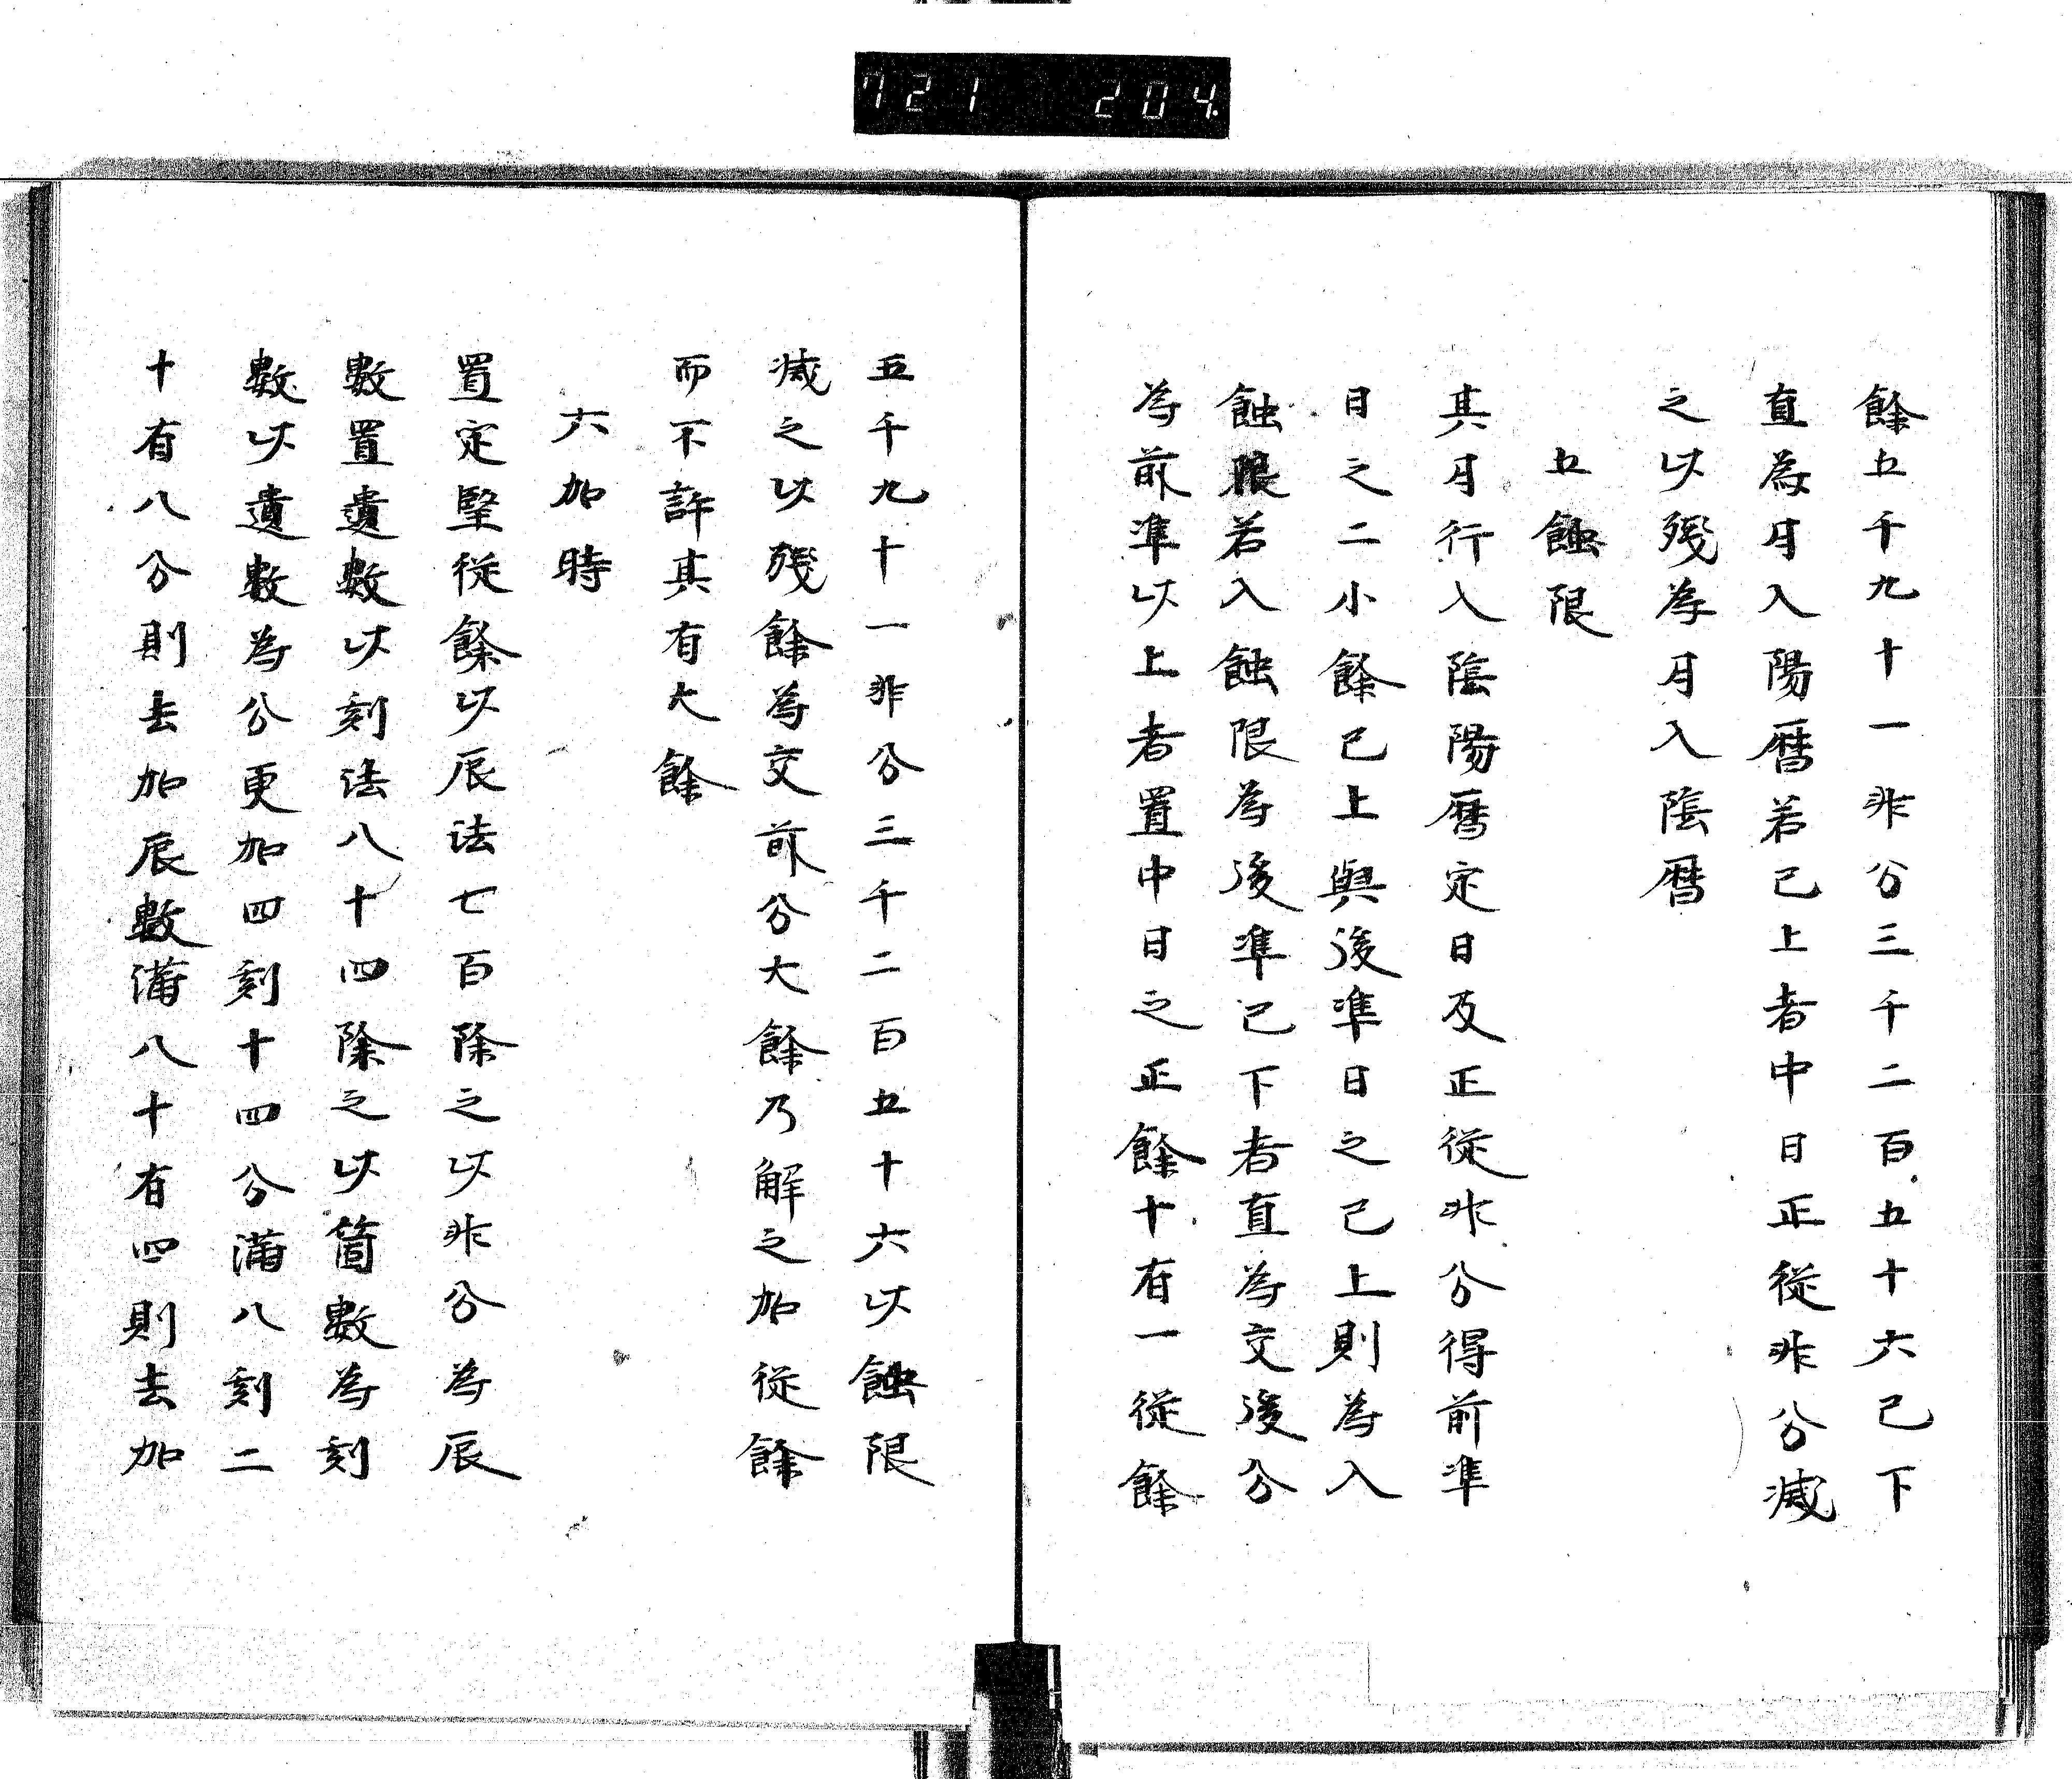 721 204.
餘五千九十一非分三千二百五十六已下
直為月入陽曆若已上者中日正從非分減
之以殘為月入陰曆
五蝕限
其月行入陰陽曆定日及正從非分得前準
日之二小餘已上與後準日之已上則為入
蝕限若入蝕限為後準已下者直為交後分
為前準以上者置中日之正餘十有一從餘
五千九十一非分三千二百五十六以蝕限
減之以殘餘為交前分大餘乃解之加從餘
而不許其有大餘
六加時
置定堅從餘以辰法七百除之以非分為辰
數置遺數以刻法八十四除之以箇數為刻
數以遺數為分更加四刻十四分滿八刻二
十有八分則去加辰數滿八十有四則去加